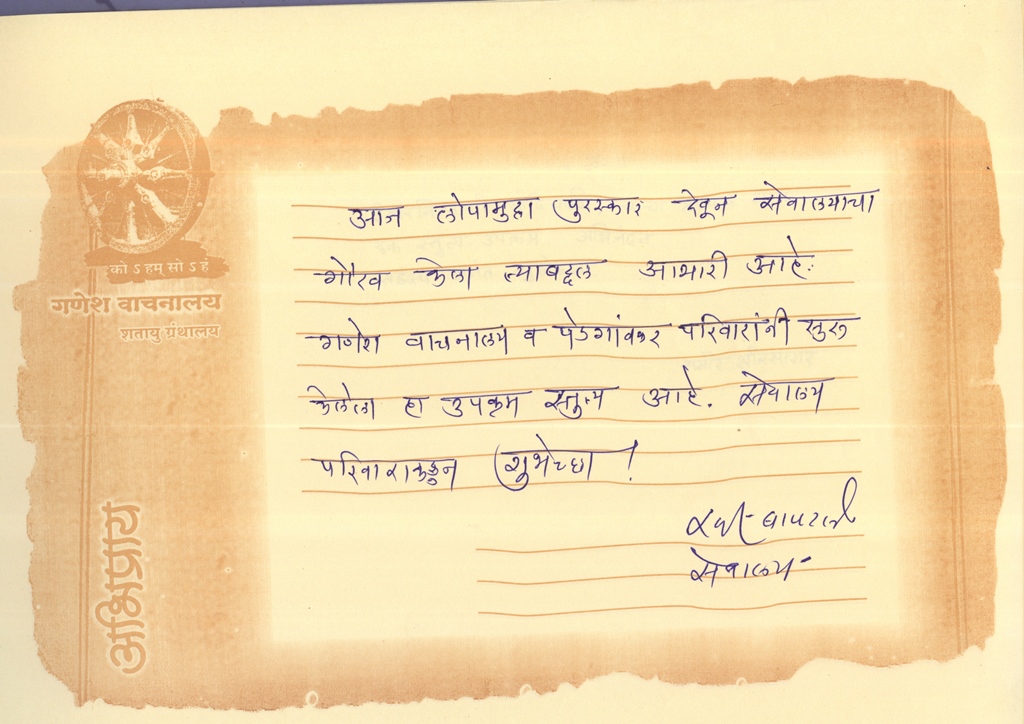 को ऽ हम् सो ऽ हं
गणेश वाचनालय
शतायु ग्रंथालय
आज लोपामुद्रा पुरस्कार देवून सेवालयाचा
गौरव केला त्याबद्दल आभारी आहे.
गणेश वाचनालय व पेडगांवकर परिवारांनी सुरू
केलेला हा उपक्रम स्तुत्य आहे. सेवालय
परिवाराकडून शुभेच्छा !
बापटले
सेवालय
अभिप्राय